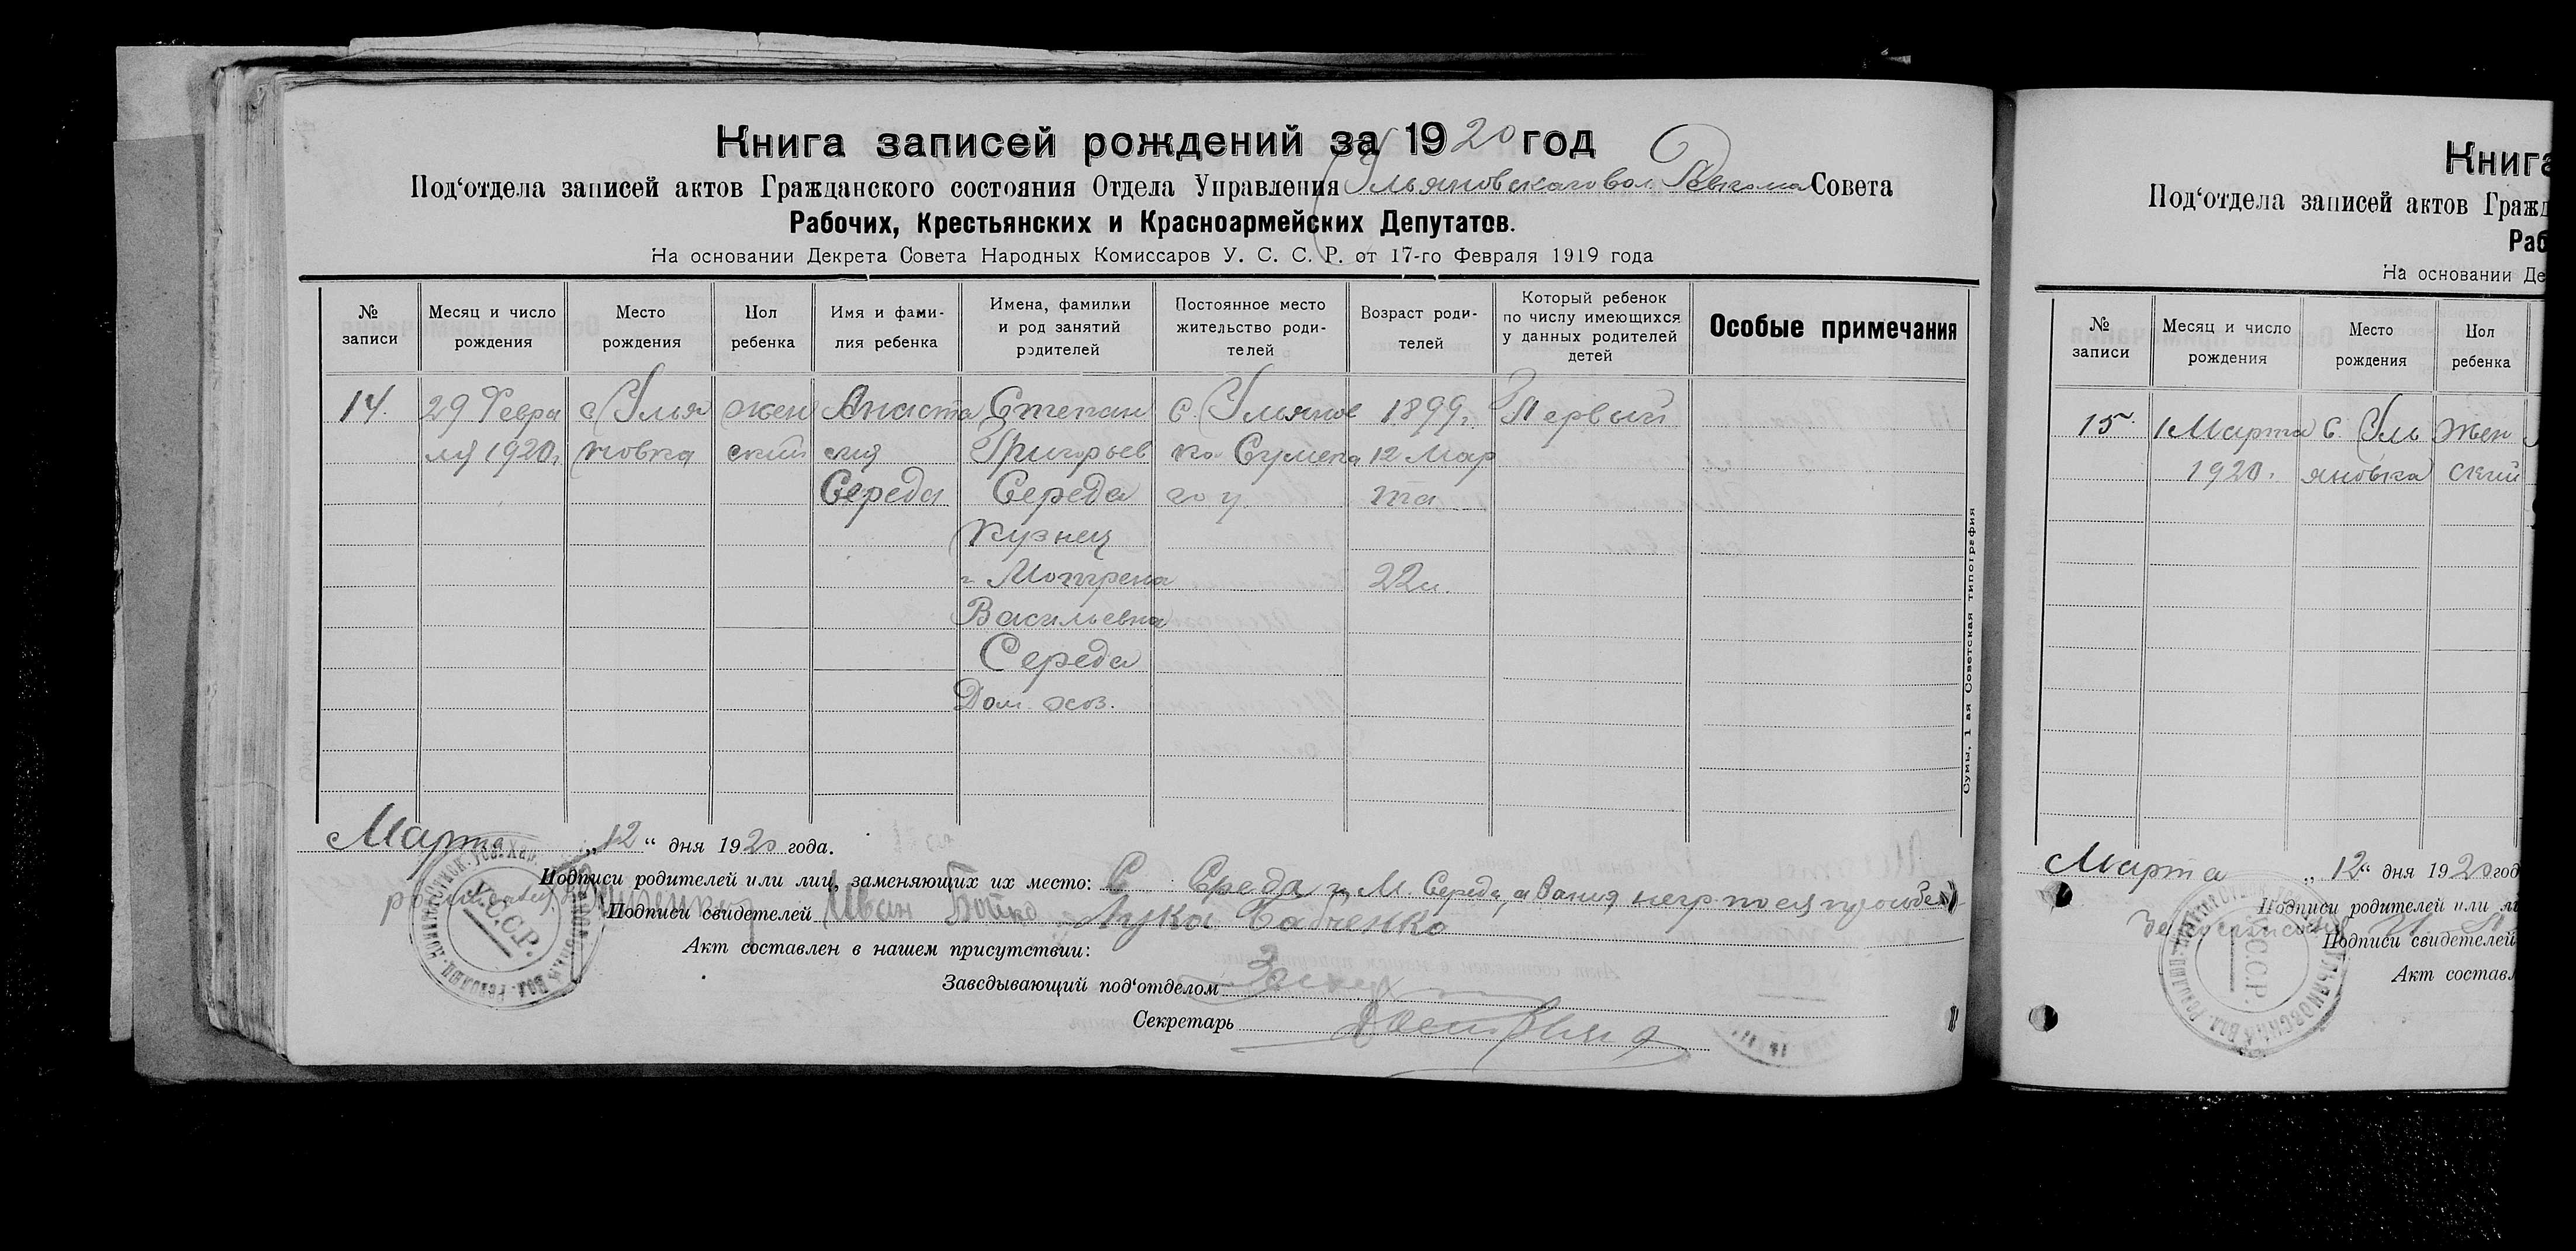 Книга записей рождений за 1920 год
Под‘отдела записей актов Гражданского состояния Отдела Управления Ульяновскаго вол. Ревкома Совета
Рабочих, Крестьянских и Красноармейских Депутатов.
На основании Декрета Совета Народных Комиссаров У. С. С. Р. от 17-го Февраля 1919 года
№ записи
Месяц и число рождения
Место рождения
Пол ребенка
Имя и фами-
лия ребенка
Имена, фамилии
и род занятий
родителей
Постоянное место
жительство роди-
телей
Возраст роди-
телей
Который ребенок
по числу имеющихся
у данных родителей
детей
Особые примечания
14. 29 Февра с. Улья жен Анаста Степан с. Ульянов 1899г. Первый
ля 1920г. новка ский сия Григорьев ка Сумска 12 Мар
Середа Середа го у. та
Кузнец
и Мотрена 22 л.
Васильевна
Середа
Дом. хоз.
Сумы, 1 ая Советская типография
Марта „12“ дня 1920 года.
Подписи родителей или лиц, заменяющих их место: С Середа и М. Середа, а за нея, негр. по ея прозьбе
Подписи свидетелей Иван Бойко Лука Бабченко
Акт составлен в нашем присутствии:
Заведывающий под‘отделом
Секретарь
У.С.С.Р.
Книга
Под‘отдела записей актов Гражд
Раб
На основании Де
№ записи
Месяц и число рождения
Место рождения
Пол ребенка
15. 1 Марта с. Уль Жен
1920г. яновка ский
Марта „12“ дня 1920 год
Подписи родителей или ли
Подписи свидетелей
Акт составл
У.С.С.Р.